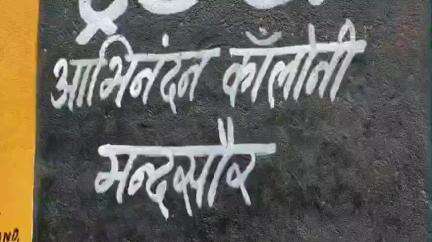 आभिनंदन कॉलोनी
मन्दसौर